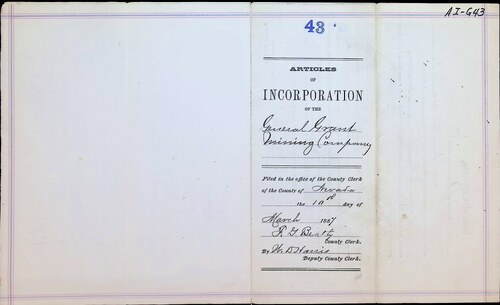 43
AI-G43
ARTICLES
OF
INCORPORATION
OF THE
General Grant
Mining Company
Filed in the office of the County Clerk
of the County of Nevada
the 10th day of
March 1867
F. G. Beatty
County Clerk.
By W. D. Harris
Deputy County Clerk.